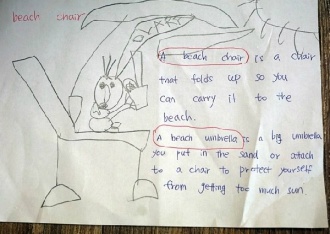 beach chair
A beach chair is a chair
that folds up so you
can carry it to the
beach.
A beach umbrella is a big umbrella
you put in the sand or attach
to a chair to protect yourself
from getting too much sun.